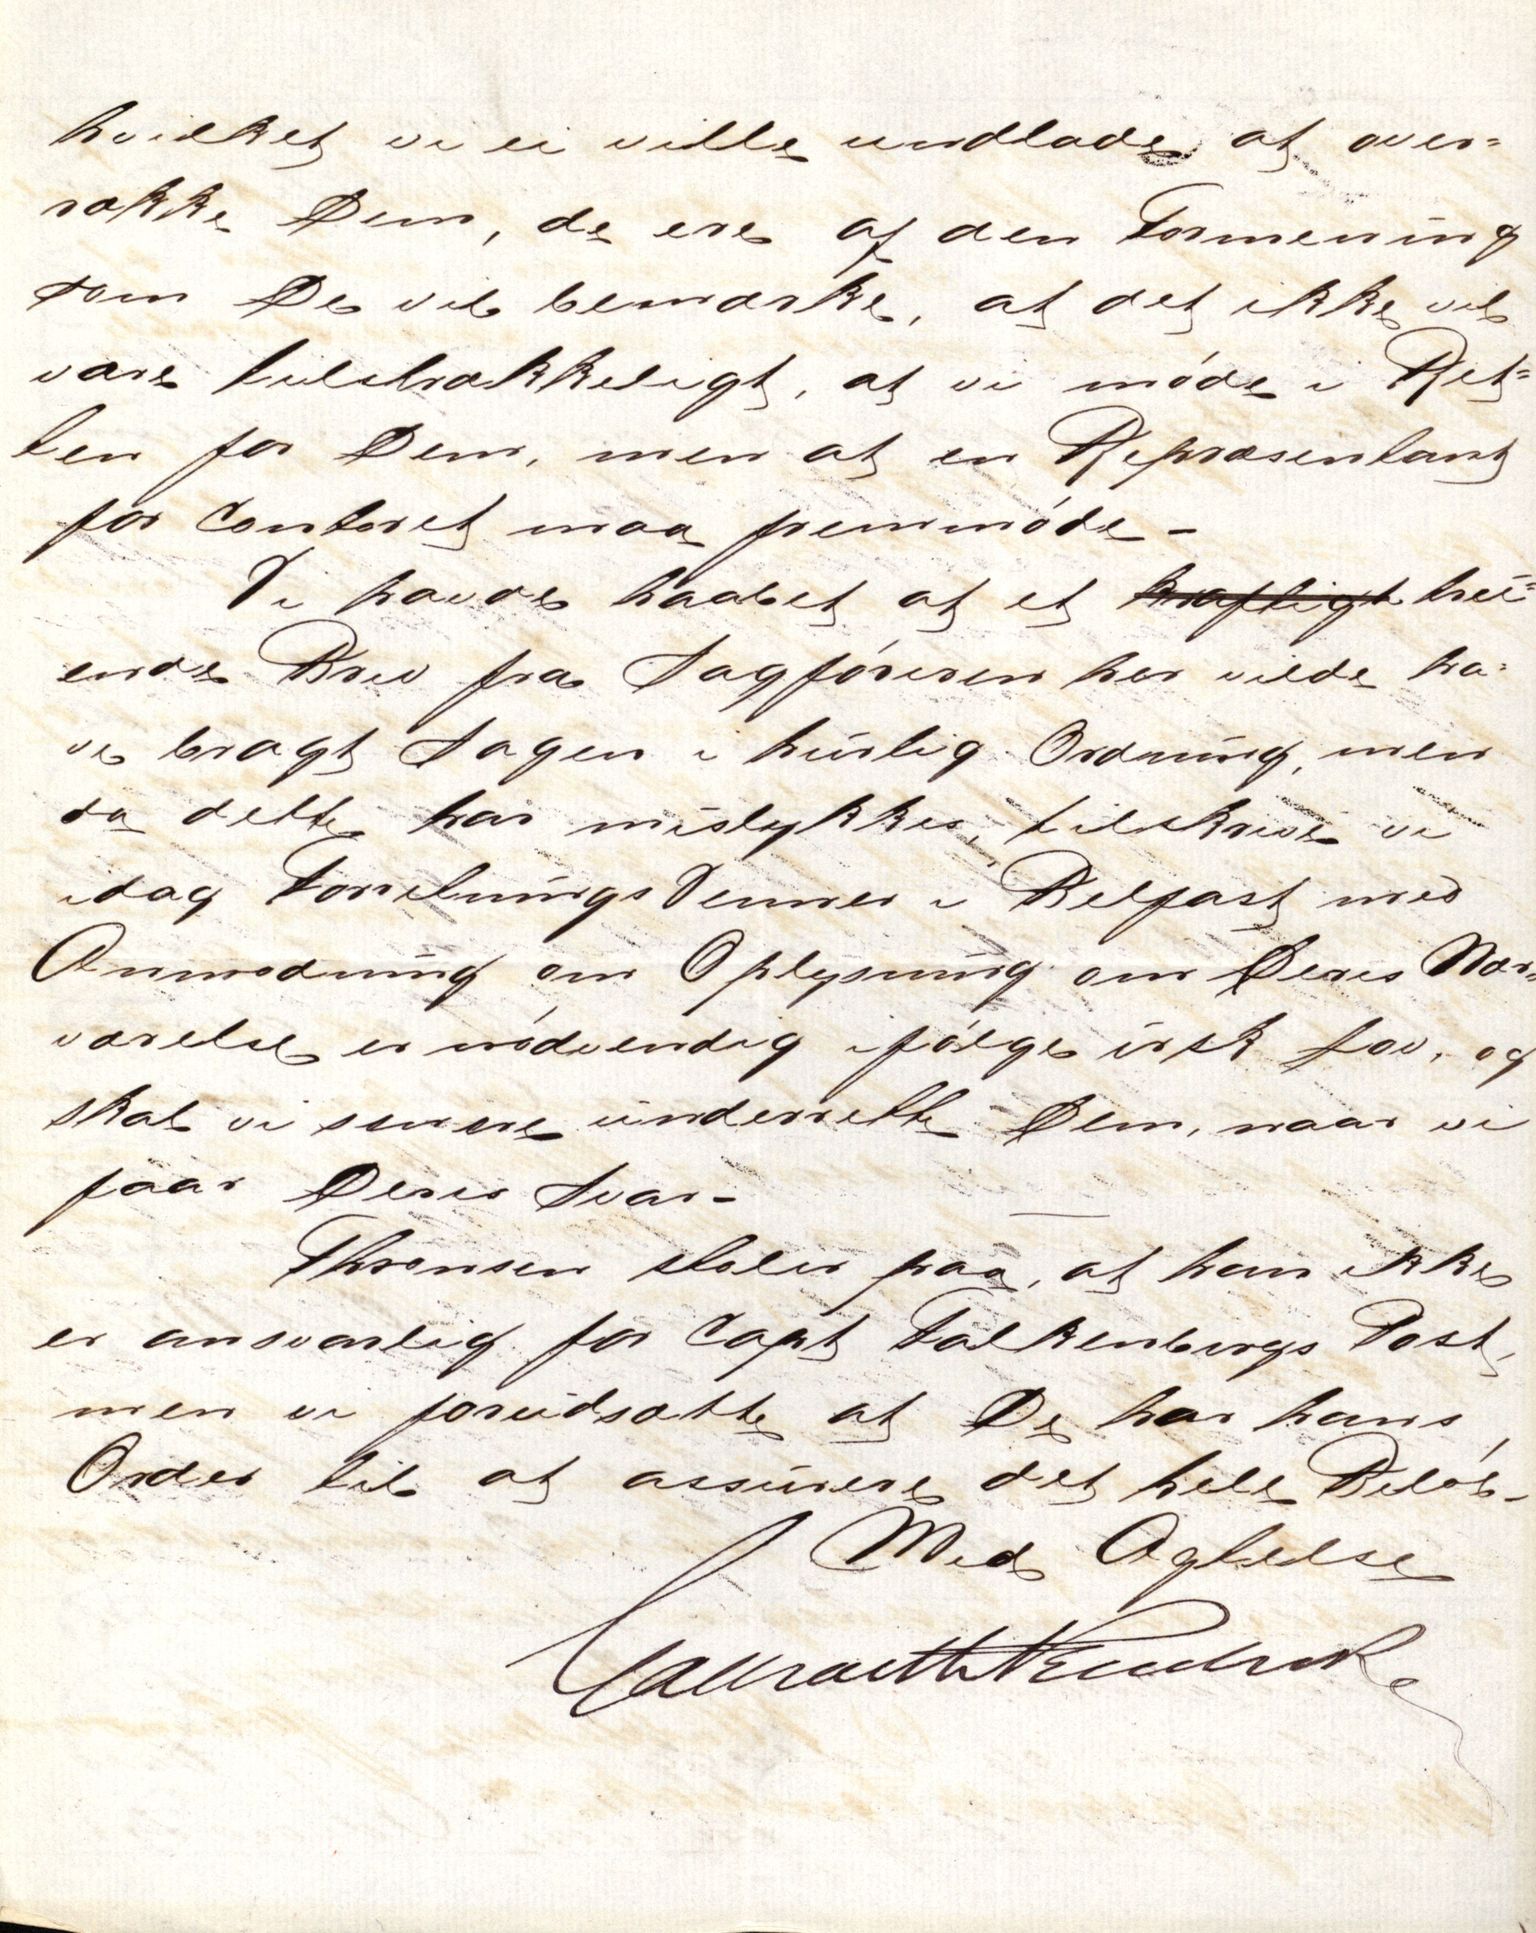 hvilket vi ei ville undlade at over=
række Dem, de ere af den Formening
som De vil bemærke, at det ikke vil
være tilstrækkeligt, at vi møde i Ret=
ten for Dem, men at en Repræsentant
for Contoret maa fremmøde -
Vi havde haabet at et kraftigt tru=
ende Brev fra Sagføreren her vilde ha=
ve bragt Sagen i hurtig Ordning, men
da dette har mislykkes, tilskrive vi
idag Forretnings Venner i Belfast med
Anmodning om Oplysning om Deres Nær=
værelse er nødvendig ifølge irsk Lov, og
skal vi senere underrette Dem, naar vi
faar Deres Svar -
Thronsen stoler paa, at han ikke
er ansvarlig for Capt Falkenbergs Post,
men vi forudsætte at De har hans
Order til at assurere det hele Beløb -
Med Agtelse